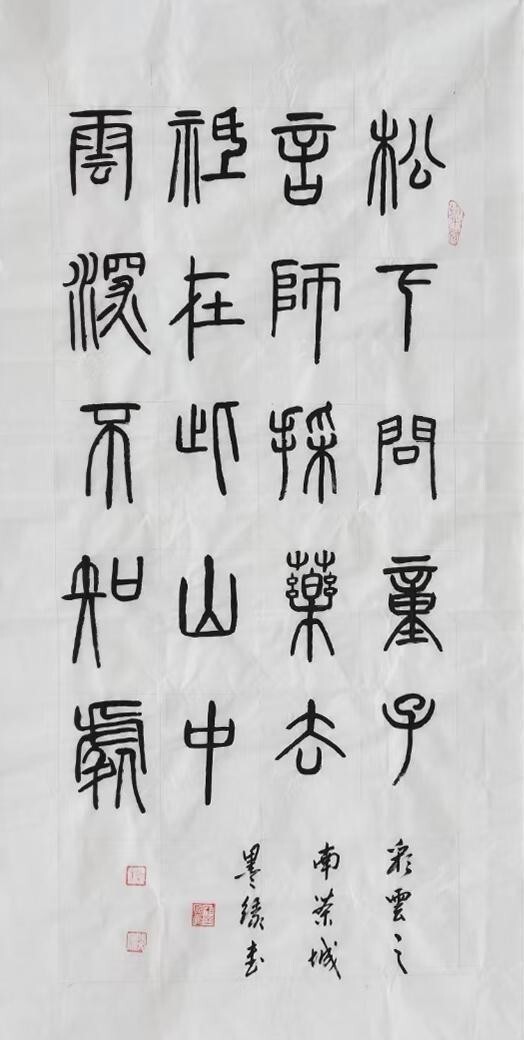 松下問童子
言師採藥去
祗在此山中
雲深不知處
彩雲之
南茶城
墨緣書